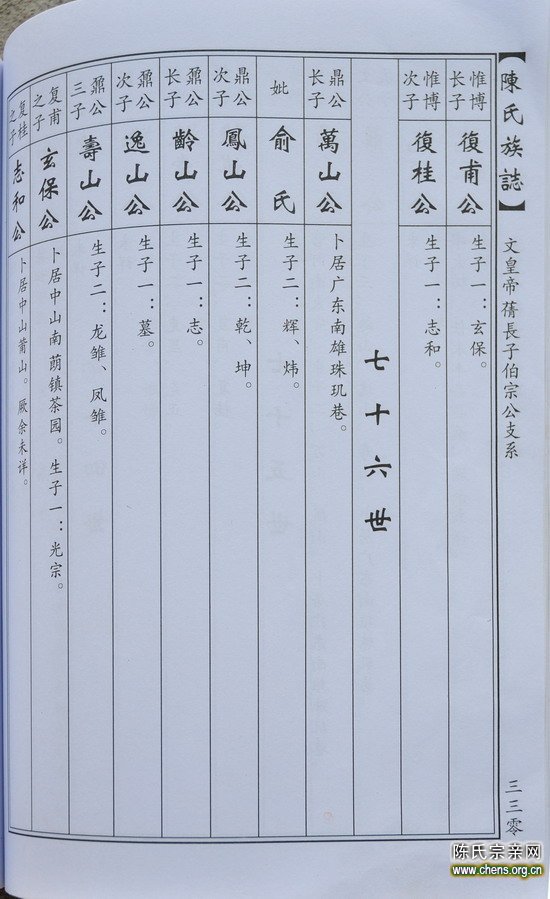 【陳氏族誌】
文皇帝蒨長子伯宗公支系
三三零
惟博
长子
復甫公
生子一：玄保。
惟博
次子
復桂公
生子一：志和。
七十六世
鼎公
长子
萬山公
卜居广东南雄珠玑巷。
妣
俞氏
生子二：辉、炜。
鼎公
次子
鳳山公
生子二：乾、坤。
鼐公
长子
齡山公
生子一：志。
鼐公
次子
逸山公
生子一：墓。
鼐公
三子
壽山公
生子二：龙雏、凤雏。
复甫
之子
玄保公
卜居中山南蓢镇茶园。生子一：光宗。
复桂
之子
志和公
卜居中山莆山。厥余未详。
陈氏宗亲网
www.chens.org.cn